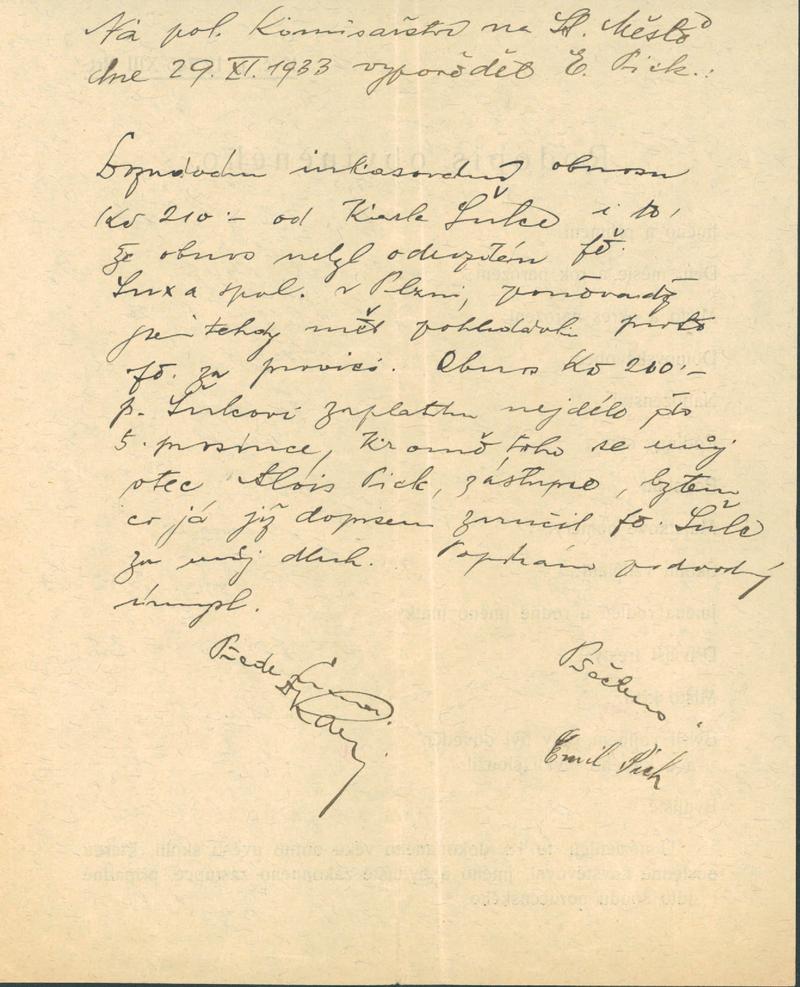 Na pol. Komisařství na St. Městě
dne 29. XI. 1933 vypověděl E. Pick.:
Doznávám inkasování obnosu
Kč 210·- od Karla Šulce i to,
že obnos nebyl odevzdán fě.
Lux a spol. v Plzni, poněvadž
jsem tehdy měl pohledávku proti
fě. za provisi. Obnos Kč 200·-
p. Šulcovi zaplatím nejdéle do
5. prosince, Kromě toho se můj
otec Alois Pick, zástupce, bytem
co já již dopisem zaručil fě. Šulc
za můj dluh. Popírám podvodný
úmysl.
Přede mnou
Přečteno
Emil Pick